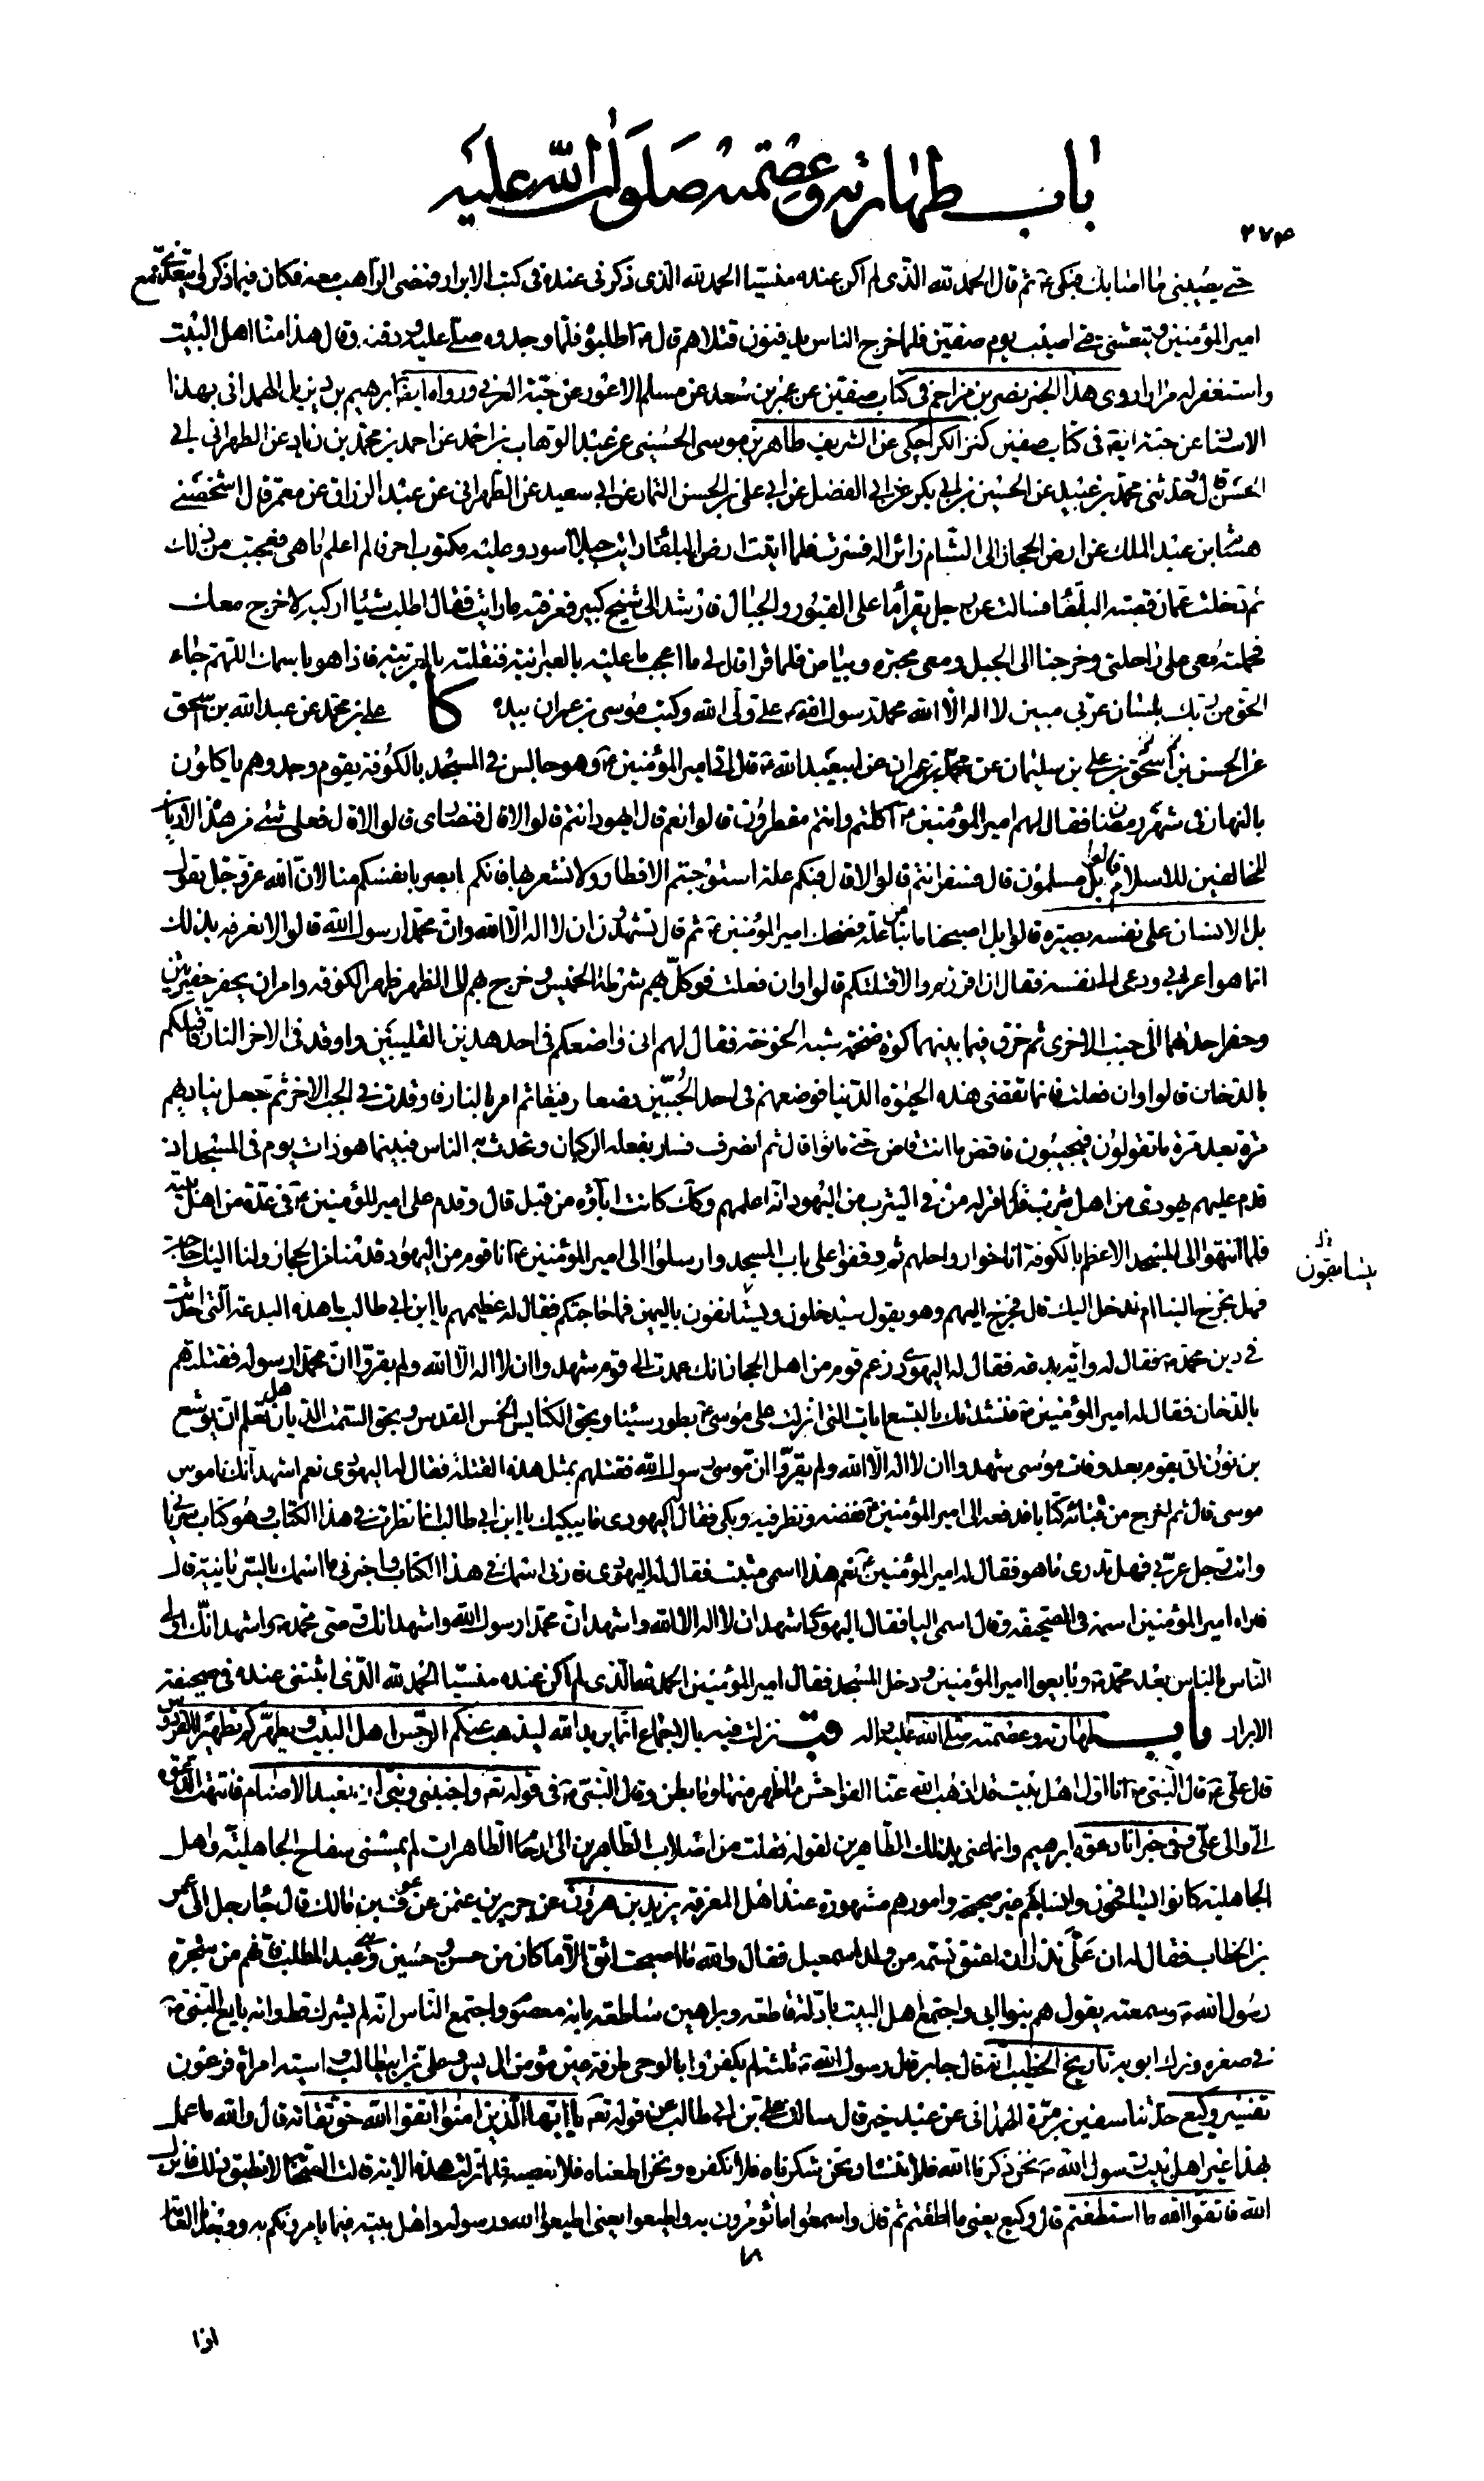 باب طهارته وعصمته صلوات الله عليه
٢٧٣
حتى يصيبنى ما اصابك فبكى ع ثم قال الحمد لله الذى لم اكن عنده منسيا الحمد لله الذى ذكرنى عنده فى كتب الابرار فمضى الراهب معه فكان فيما ذكر لى يتغدى مع
امير المؤمنين ويتعشى حتى اصيب يوم صفين فلما خرج الناس يدفنون قتلاهم قال ع اطلبوه فلما وجدوه صلى عليه ودفنه وقال هذا منا اهل البيت
واستغفر له مرارا روى هذا الخبر نصر بن مزاحم فى كتاب صفين عن عمر بن سعد عن مسلم الاعور عن حبة العرنى ورواه ايضا ابرهيم بن ديزيل الهمدانى بهذا
الاسناد عن حبة ايضا فى كتاب صفين كنز الكراجكى عن الشريف طاهر بن موسى الحسينى عن عبد الوهاب بن احمد عن احمد بن محمد بن زياد عن الطهرانى ابى
الحسن قال وحدثنى محمد بن عبيد عن الحسين بن ابى بكر عن ابى الفضل عن ابى على بن الحسن التمار عن ابى سعيد عن الطهرانى عن عبد الرزاق عن معمر قال اشخصنى
هشام بن عبد الملك عن ارض الحجاز الى الشام زائرا له فسرت فلما اتيت ارض البلقاء رايت جبلا اسود وعليه مكتوب احرفا لم اعلم ما هى فعجبت من ذلك
ثم دخلت عمان قصبة البلقاء فسالت عن رجل يقرأ ما على القبور والجبال فارشدت الى شيخ كبير فعرفته ما رايت فقال اطلب شيئا اركبه لاخرج معك
فحملته معى على راحلتى وخرجنا الى الجبل ومعى محبرة وبياض فلما قراه قال لى ما اعجب ما عليه بالعبرانية فنقلته بالعربية فاذا هو باسمك اللهم جاء
الحق من ربك بلسان عربى مبين لا اله الا الله محمد رسول الله ص على ولى الله وكتب موسى بن عمران بيده كا على بن محمد عن عبد الله بن اسحق
عن الحسن بن على بن سليمان عن محمد بن عمران عن ابيعبد الله ع قال اتى امير المؤمنين ع وهو جالس فى المسجد بالكوفة بقوم وجدوهم ياكلون
بالنهار فى شهر رمضان فقال لهم امير المؤمنين ع اكلتم وانتم مفطرون قالوا نعم قال ايهود انتم قالوا لا قال فنصارى قالوا لا قال فعلى شىء من هذه الاديان
المخالفين للاسلام قالوا بل مسلمون قال فسفر انتم قالوا لا قال فبكم علة استوجبتم الافطار ولا نشعر بها فانكم ابصر بانفسكم منا لان الله عز وجل يقول
بل الانسان على نفسه بصيرة قالوا بل اصبحنا ما بنا من علة فضحك امير المؤمنين ع ثم قال تشهدون ان لا اله الا الله وان محمدا رسول الله قالوا لا نعرفه بذلك
انما هو اعرابى دعى الى نفسه فقال ان اقررتم والا قتلتكم قالوا وان فعلت فوكل بهم شرطة الخميس وخرج بهم الى الظهر ظهر الكوفة وامر ان يحفر حفيرتين
وحفر احدهما الى جنب الاخرى ثم خرق فيما بينهما كوة ضخمة شبه الخوخة فقال لهم انى واضعكم فى احد هذين القليبين واوقد فى الاخر النار فاقتلكم
بالدخان قالوا وان فعلت فانما تقضى هذه الحيوة الدنيا فوضعهم فى احد الجبين وضعا رفيقا ثم امر بالنار فاوقدت فى الجب الاخر ثم جعل يناديهم
مرة بعد مرة ما تقولون فيجيبون فاقض ما انت قاض حتى ماتوا قال ثم انصرف فسار بفعله الركبان وتحدث به الناس فبينما هو ذات يوم فى المسجد اذ
قدم عليهم يهودى من اهل يثرب قد اقر له من فى يثرب من اليهود انه اعلمهم وكذلك كانت اباؤه من قبل قال وقدم على امير المؤمنين ع فى عدة من اهل بيته
فلما انتهوا الى المسجد الاعظم بالكوفة اناخوا رواحلهم ثم وقفوا على باب المسجد وارسلوا الى امير المؤمنين ع انا قوم من اليهود قدمنا من الحجاز ولنا اليك حاجة
فهل تخرج الينا ام ندخل اليك قال فخرج اليهم وهو يقول سيدخلون ويستانفون باليمين فما حاجتكم فقال له عظيمهم يا ابن ابى طالب ما هذه البدعة التى احدثت
يتسابقون
فى دين محمد ص فقال له واية بدعة فقال له اليهودى زعم قوم من اهل الحجاز انك عمدت الى قوم شهدوا ان لا اله الا الله ولم يقروا ان محمدا رسوله فقتلتهم
بالدخان فقال له امير المؤمنين ع فنشدتك بالتسع ايات التى انزلت على موسى ع بطور سيناء وبحق الكنايس الخمس القدس وبحق السمت الديان هل تعلم ان يوشع
بن نون اتى بقوم بعد وفات موسى شهدوا ان لا اله الا الله ولم يقروا ان موسى رسول الله فقتلهم بمثل هذه القتلة فقال له اليهودى نعم اشهد انك ناموس
موسى قال ثم اخرج من قبائه كتابا فدفعه الى امير المؤمنين ع ففضه ونظر فيه وبكى فقال له اليهودى ما يبكيك يا ابن ابى طالب انما نظرت فى هذا الكتاب وهو كتاب سريانى
وانت رجل عربى فهل تدرى ما هو فقال له امير المؤمنين ع نعم هذا اسمى مثبت فقال له اليهودى فارنى اسمك فى هذا الكتاب واخبرنى ما اسمك بالسريانية قال
فاراه امير المؤمنين اسمه فى الصحيفة وقال اسمى اليا فقال اليهودى اشهد ان لا اله الا الله واشهد ان محمدا رسول الله واشهد انك وصى محمد ص واشهد انك اولى
الناس بالناس بعد محمد ص وبايعوا امير المؤمنين ودخل المسجد فقال امير المؤمنين الحمد لله الذى لم اكن عنده منسيا الحمد لله الذى اثبتنى عنده فى صحيفة
الابرار باب طهارته وعصمته صلى الله عليه واله قب نزلت فيه بالاجماع انما يريد الله ليذهب عنكم الرجس اهل البيت ويطهركم تطهيرا الفردوس
قال على ع قال النبى ص انا اول اهل بيت قد اذهب الله عنا الفواحش ما ظهر منها وما بطن وقال النبى ص فى قوله تع واجنبنى وبنى ان نعبد الاصنام فانتهت الدعوة
الى والى على وفى خبر انا دعوة ابرهيم وانما عنى بذلك الطاهرين لقوله نقلت من اصلاب الطاهرين الى ارحام الطاهرات لم يمسنى سفاح الجاهلية واهل
الجاهلية كانوا يسافحون وانسابهم غير صحيحة وامورهم مشهورة عند اهل المعرفة يزيد بن هرون عن جرير بن عثمن عن عوف بن مالك قال جاء رجل الى عمر
بن الخطاب فقال له ان على نذرا ان اعتق نسمة من ولد اسمعيل فقال والله ما اصبحت اثق الا ما كان من حسن وحسين وبنى عبد المطلب فانهم من شجرة
رسول الله ص وسمعته يقول هم بنو ابى واجتمع اهل البيت بادلة قاطعة وبراهين ساطعة بانه معصوم واجتمع الناس انه لم يشرك قط وانه بايع النبى ص
فى صغره وترك ابويه تاريخ الخطيب انه قال جابر قال رسول الله ص ثلثة لم يكفروا بالوحى طرفة عين مؤمن ال يس وعلى بن ابى طالب واسية امراة فرعون
تفسير وكيع حدثنا سفين بن مرة الهمدانى عن عبد خير قال سالت على بن ابى طالب عن قوله تع يا ايها الذين امنوا اتقوا الله حق تقاته قال والله ما عمل
بهذا غير اهل بيت رسول الله ص نحن ذكرنا الله فلا ننساه ونحن شكرناه فلا نكفره ونحن اطعناه فلا نعصيه فلما نزلت هذه الاية قالت الصحابة لا نطيق ذلك فانزل
الله فاتقوا الله ما استطعتم قال وكيع يعنى ما اطقتم ثم قال واسمعوا ما تؤمرون به واطيعوا يعنى اطيعوا الله ورسوله واهل بيته فيما يامرونكم به
اذا